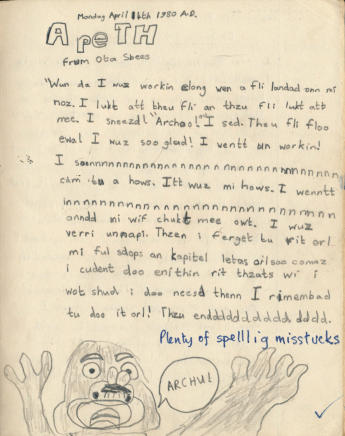 Monday April 14th 1980 A.D.
A peTH
from Ota Sbees
"Wun da I wuz workin along wen a fli landad onn mi
noz. I lukt att theu fli an thzu fli lukt atb
mee. I sneezd! "Archoo!" I sed. Theu fli floo
ewai I wuz soo glad! I wentt onn workin!
I soonnnnnnnnnnnnnnnnnnnnn
cam tu a hows. Itt wuz mi hows. I wenntt
innnnnnnnnnnnnnnnnnnnnnn
anndd mi wif chukt mee owt. I wuz
verri unnapi. Theen i ferget tu rit orl
mi ful sdops an kapitel letas orlsoo comaz
i cudent doo enithin rit thzats wi i
wot shud i doo neesd thenn I rimembad
tu doo it orl! Thzu enddddddddddd dddd.
Plenty of spelllig misstucks
ARCHU!